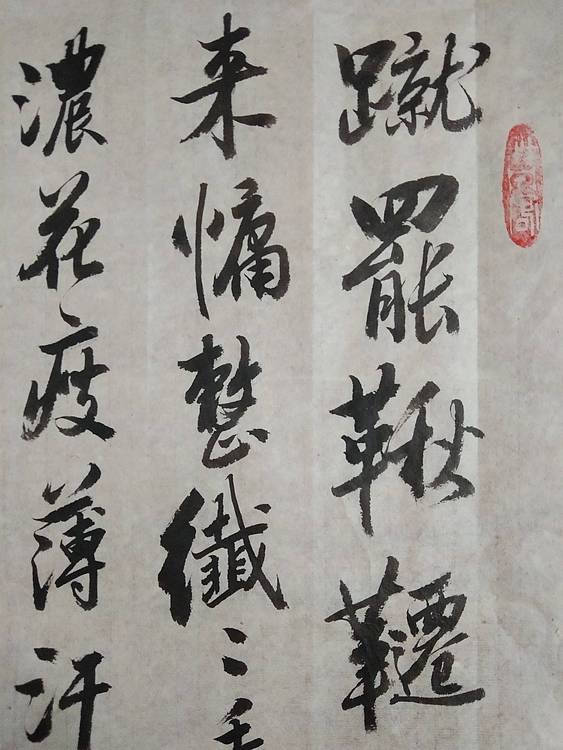 蹴罷鞦韆
来慵整纖〻
濃花瘦薄汗